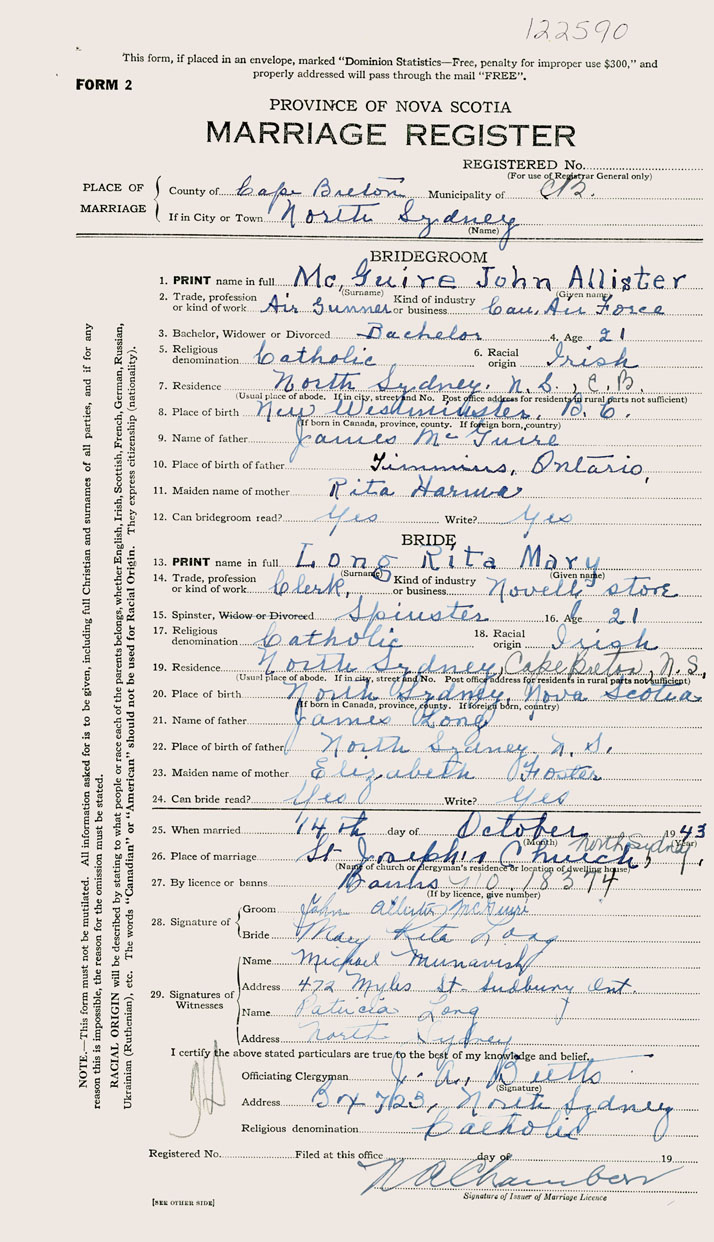 122590
This form, if placed in an envelope, marked “Dominion Statistics—Free, penalty for improper use $300,” and
properly addressed will pass through the mail “FREE”.
FORM 2
PROVINCE OF NOVA SCOTIA
MARRIAGE REGISTER
REGISTERED No.
(For use of Registrar General only)
PLACE OF MARRIAGE
County of Cape Breton Municipality of C.B.
If in City or Town North Sydney
(Name)
BRIDEGROOM
1. PRINT name in full Mc Guire John Allister
(Surname) (Given name)
2. Trade, profession or kind of work Air Gunner Kind of industry or business Can. Air Force
3. Bachelor, Widower or Divorced Bachelor 4. Age 21
5. Religious denomination Catholic 6. Racial origin Irish
7. Residence North Sydney. N.S., C.B.
(Usual place of abode. If in city, street and No. Post office address for residents in rural parts not sufficient)
8. Place of birth New Westminster, B.C.
(If born in Canada, province, county. If foreign born, country)
9. Name of father James McGuire
10. Place of birth of father Timmins, Ontario,
11. Maiden name of mother Rita
12. Can bridegroom read? Yes Write? Yes
BRIDE
13. PRINT name in full Long Rita Mary
(Surname) (Given name)
14. Trade, profession or kind of work Clerk, Kind of industry or business Novelty store
15. Spinster, Widow or Divorced Spinster 16. Age 21
17. Religious denomination Catholic 18. Racial origin Irish
19. Residence North Sydney, Cape Breton, N.S.
(Usual place of abode. If in city, street and No. Post office address for residents in rural parts not sufficient)
20. Place of birth North Sydney, Nova Scotia
(If born in Canada, province, county. If foreign born, country)
21. Name of father James Long
22. Place of birth of father North Sydney. N.S.
23. Maiden name of mother Elizabeth Foster
24. Can bride read? Yes Write? Yes
25. When married 14th day of October 1943
(Month) (Year)
26. Place of marriage St Joseph's Church, North Sydney
(Name of church or clergyman's residence or location of dwelling house)
27. By licence or banns Banns No. 18374
(If by licence, give number)
28. Signature of
Groom John Allister McGuire
Bride Mary Rita Long
29. Signatures of Witnesses
Name Michael
Address 472 Myles St. Sudbury Ont.
Name Patricia Long
Address North Sydney
I certify the above stated particulars are true to the best of my knowledge and belief.
Officiating Clergyman J. A. Butts
(Signature)
Address Bx 723, North Sydney
Religious denomination Catholic
Registered No. Filed at this office day of 19
N A Chambers
Signature of Issuer of Marriage Licence
[SEE OTHER SIDE]
NOTE.—This form must not be mutilated. All information asked for is to be given, including full Christian and surnames of all parties, and if for any
reason this is impossible, the reason for the omission must be stated.
RACIAL ORIGIN will be described by stating to what people or race each of the parents belongs, whether English, Irish, Scottish, French, German, Russian,
Ukrainian (Ruthenian), etc. The words “Canadian” or “American” should not be used for Racial Origin. They express citizenship (nationality).